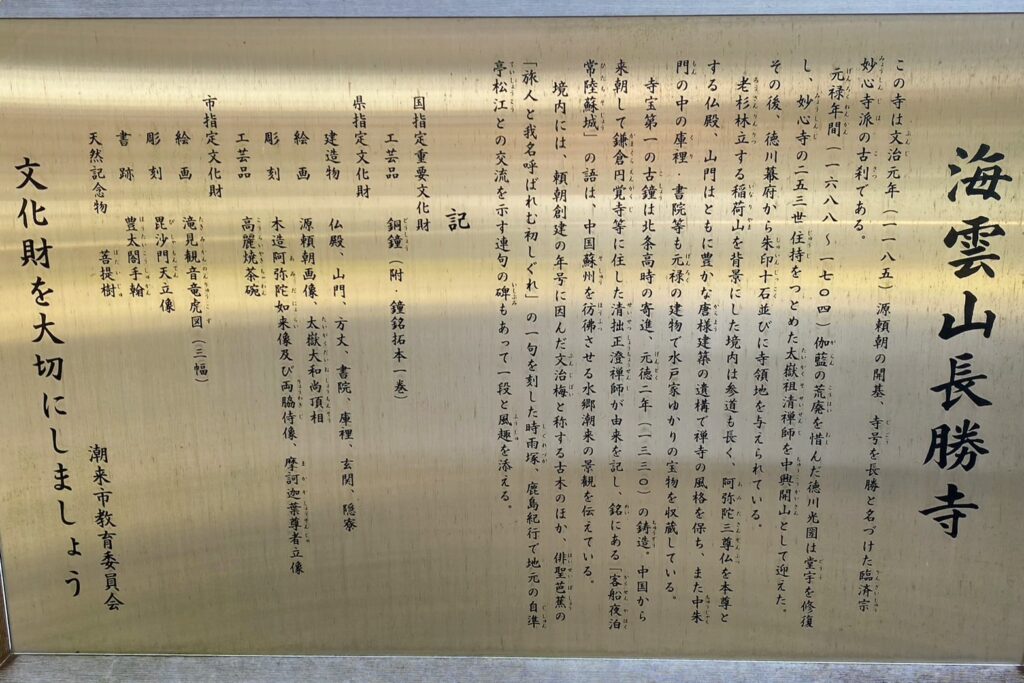 海雲山長勝寺
この寺は文治元年（一一八五）源頼朝の開基、寺号を長勝と名づけた臨済宗
妙心寺派の古刹である。
元禄年間（一六八八～一七〇四）伽藍の荒廃を惜んだ徳川光圀は堂宇を修復
し、妙心寺の二五三世住持をつとめた太嶽祖清禅師を中興開山として迎えた。
その後、徳川幕府から朱印十石並びに寺領地を与えられている。
老杉林立する稲荷山を背景にした境内は参道も長く、阿弥陀三尊仏を本尊と
する仏殿、山門はともに豊かな唐様建築の遺構で禅寺の風格を保ち、また中朱
門の中の庫裡・書院等も元禄の建物で水戸家ゆかりの宝物を収蔵している。
寺宝第一の古鐘は北条高時の寄進、元徳二年（一三三〇）の鋳造。中国から
来朝して鎌倉円覚寺等に住した清拙正澄禅師が由来を記し、銘にある「客船夜泊
常陸蘇城」の語は、中国蘇州を彷彿させる水郷潮来の景観を伝えている。
境内には、頼朝創建の年号に因んだ文治梅と称する古木のほか、俳聖芭蕉の
「旅人と我名呼ばれむ初しぐれ」の一句を刻した時雨塚、鹿島紀行で地元の自準
亭松江との交流を示す連句の碑もあって一段と風趣を添える。
記
国指定重要文化財
工芸品　銅鐘（附・鐘銘拓本一巻）
県指定文化財
建造物　仏殿、山門、方丈、書院、庫裡、玄関、隠寮
絵画　源頼朝画像、太嶽大和尚頂相
彫刻　木造阿弥陀如来像及び両脇侍像、摩訶迦葉尊者立像
工芸品　高麗焼茶碗
市指定文化財
絵画　滝見観音竜虎図（三幅）
彫刻　毘沙門天立像
書跡　豊太閤手翰
天然記念物　菩提樹
潮来市教育委員会
文化財を大切にしましょう